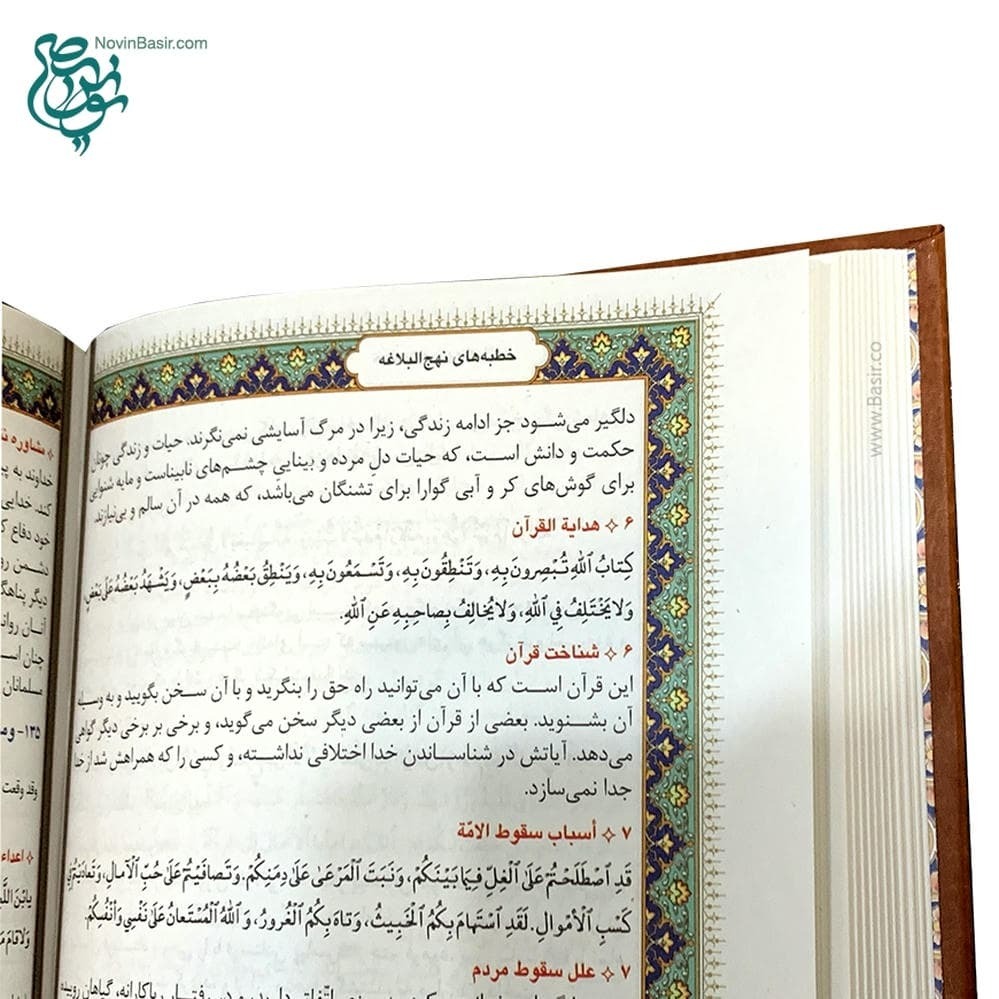 NovinBasir.com
خطبه‌های نهج البلاغه
دلگیر می‌شود جز ادامه زندگی، زیرا در مرگ آسایشی نمی‌نگرند. حیات و زندگی چونان
حکمت و دانش است، که حیات دلِ مرده و بیناییِ چشم‌های نابیناست و مایه شنوایی
برای گوش‌های کر و آبی گوارا برای تشنگان می‌باشد، که همه در آن سالم و بی‌نیازند.
۶ ✧ هدایة القرآن
كِتابُ ٱللهِ تُبْصِرونَ بِهِ، وَتَنْطِقُونَ بِهِ، وَتَسْمَعُونَ بِهِ، وَيَنْطِقُ بَعْضُهُ بِبَعْضٍ، وَيَشْهَدُ بَعْضُهُ عَلىٰ بَعْضٍ،
وَلا يَخْتَلِفُ فِي ٱللهِ، وَلا يُخالِفُ بِصاحِبِهِ عَنِ ٱللهِ.
۶ ✧ شناخت قرآن
این قرآن است که با آن می‌توانید راه حق را بنگرید و با آن سخن بگویید و به وسیله
آن بشنوید. بعضی از قرآن از بعضی دیگر سخن می‌گوید، و برخی بر برخی دیگر گواهی
می‌دهد. آیاتش در شناساندن خدا اختلافی نداشته، و کسی را که همراهش شد از خدا
جدا نمی‌سازد.
۷ ✧ أسباب سقوط الامّة
قَدِ ٱصْطَلَحْتُمْ عَلَىٰ ٱلْغِلِّ فِيمَا بَيْنَكُمْ، وَنَبَتَ ٱلْمَرْعَىٰ عَلَىٰ دِمَنِكُمْ. وَتَصافَيْتُمْ عَلَىٰ حُبِّ ٱلْآمالِ، وَتَعادَيْتُمْ فِي
كَسْبِ ٱلْأَمْوالِ. لَقَدِ ٱسْتَهامَ بِكُمُ ٱلْخَبِيثُ، وَتاهَ بِكُمُ ٱلْغُرورُ، وَٱللهُ ٱلْمُسْتَعانُ عَلَىٰ نَفْسِي وَأَنْفُسِكُمْ.
۷ ✧ علل سقوط مردم
✧ مشاوره
خداوند به
کند. خدایی
خود دفاع
دشمن
دیگر
آنان
چنان
مسلمانان
۱۳۵-
وقد وقعت
✧
www.Basir.co